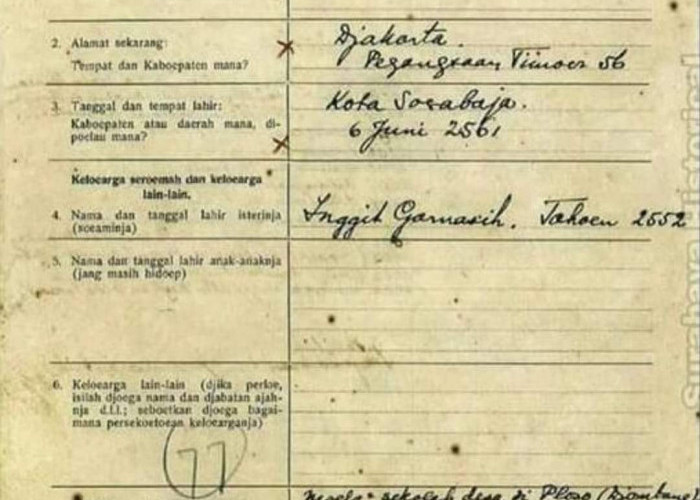 2. Alamat sekarang:
Tempat dan Kaboepaten mana?
Djakarta.
Pegangsaan Timoer 56
3. Tanggal dan tempat lahir:
Kaboepaten atau daerah mana, di-
poelau mana?
Kota Soerabaja.
6 Juni 2561
Keloearga seroemah dan keloearga
lain-lain.
4. Nama dan tanggal lahir isterinja
(soeaminja)
Inggit Garnasih. Tahoen 2552
5. Nama dan tanggal lahir anak-anaknja
(jang masih hidoep)
6. Keloearga lain-lain (djika perloe,
isilah djoega nama dan djabatan ajah-
nja d.l.l.; seboetkan djoega bagai-
mana persekoetoean keloearganja)
77
sekolah desa di Ploso (Djombang)